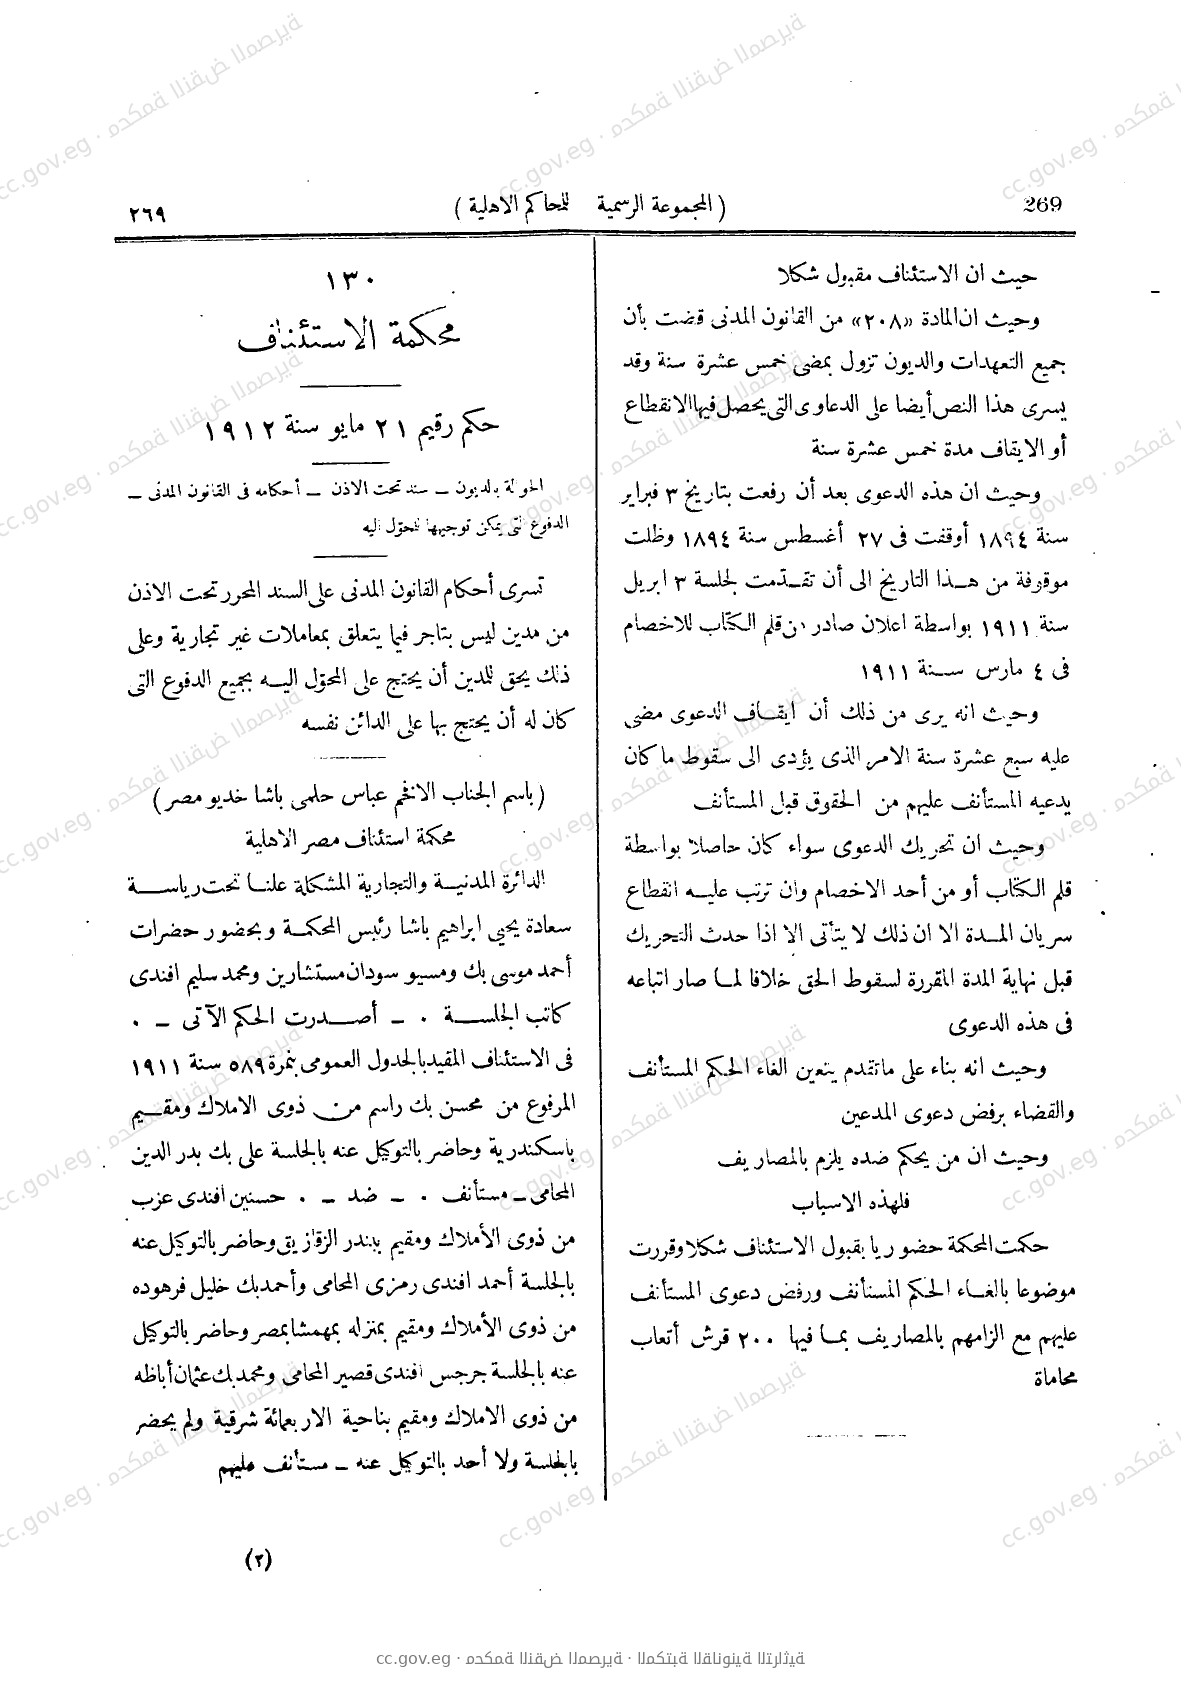 269
( المجموعة الرسمية للمحاكم الاهلية )
٢٦٩
حيث ان الاستئناف مقبول شكلا
وحيث ان المادة «٢٠٨» من القانون المدنى قضت بأن
جميع التعهدات والديون تزول بمضى خمس عشرة سنة وقد
يسرى هذا النص أيضا على الدعاوى التى يحصل فيها الانقطاع
أو الايقاف مدة خمس عشرة سنة
وحيث ان هذه الدعوى بعد أن رفعت بتاريخ ٣ فبراير
سنة ١٨٩٤ أوقفت فى ٢٧ أغسطس سنة ١٨٩٤ وظلت
موقوفة من هـذا التاريخ الى أن تقـدّمت لجلسة ٣ ابريل
سنة ١٩١١ بواسطة اعلان صادر من قلم الكتاب للاخصام
فى ٤ مارس سـنة ١٩١١
وحيث انه يرى من ذلك أن ايقـاف الدعوى مضى
عليه سبع عشرة سنة الامر الذى يؤدى الى سقوط ما كان
يدعيه المستأنف عليهم من الحقوق قبل المستأنف
وحيث ان تحريك الدعوى سواء كان حاصلا بواسطة
قلم الكتاب أو من أحد الاخصام وان ترتب عليـه انقطاع
سريان المـدة الا ان ذلك لا يتأتى الا اذا حدث التحريك
قبل نهاية المدة المقررة لسقوط الحق خلافا لمـا صار اتباعه
فى هذه الدعوى
وحيث انه بناء على ماتقدم يتعين الغاء الحكم المستأنف
والقضاء برفض دعوى المدعين
وحيث ان من يحكم ضده يلزم بالمصاريف
فلهذه الاسباب
حكمت المحكمة حضوريا بقبول الاستئناف شكلا وقررت
موضوعا بالغـاء الحكم المستأنف ورفض دعوى المستأنف
عليهم مع الزامهم بالمصاريف بمـا فيها ٢٠٠ قرش أتعاب
محاماة
١٣٠
محكمة الاستئناف
حكم رقيم ٢١ مايو سنة ١٩١٢
الحوالة بالديون ــ سند تحت الاذن ــ أحكامه فى القانون المدنى ــ
الدفوع التى يمكن توجيهها للمحوّل اليه
تسرى أحكام القانون المدنى على السند المحرر تحت الاذن
من مدين ليس بتاجر فيما يتعلق بمعاملات غير تجارية وعلى
ذلك يحق للمدين أن يحتج على المحوّل اليـه بجميع الدفوع التى
كان له أن يحتج بها على الدائن نفسه
( باسم الجناب الافخم عباس حلمى باشا خديو مصر )
محكمة استئناف مصر الاهلية
الدائرة المدنيـة والتجارية المشكلة علنـا تحت رياســة
سعادة يحيى ابراهيم باشا رئيس المحكمـة وبحضور حضرات
أحمد موسى بك ومسيو سودان مستشارين ومحمد سليم افندى
كاتب الجلســة ٠ ــ أصــدرت الحكم الآتى ــ ٠
فى الاستئناف المقيد بالجدول العمومى بنمرة ٥٨٩ سنة ١٩١١
المرفوع من محسن بك راسم من ذوى الاملاك ومقـيم
باسكندرية وحاضر بالتوكيل عنه بالجلسة على بك بدر الدين
المحامى ــ مستأنف ٠ ــ ضد ــ ٠ حسنين افندى عزب
من ذوى الأملاك ومقيم ببندر الزقازيق وحاضر بالتوكيل عنه
بالجلسة أحمد افندى رمزى المحامى وأحمد بك خليل فرهوده
من ذوى الأملاك ومقيم بمنزله بمهمشا بمصر وحاضر بالتوكيل
عنه بالجلسة جرجس افندى قصير المحامى ومحمد بك عثمان أباظه
من ذوى الاملاك ومقيم بناحية الاربعمائة شرقية ولم يحضر
بالجلسة ولا أحد بالتوكيل عنه ــ مستأنف عليهم
(٢)
cc.gov.eg · محكمة النقض المصرية · المكتبة القانونية التراثية